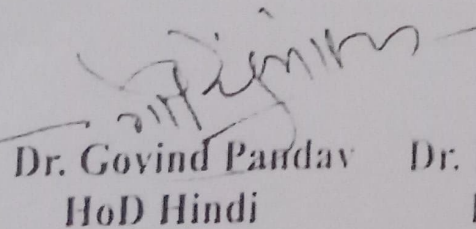 Dr. Govind Pandav Dr.
HoD Hindi